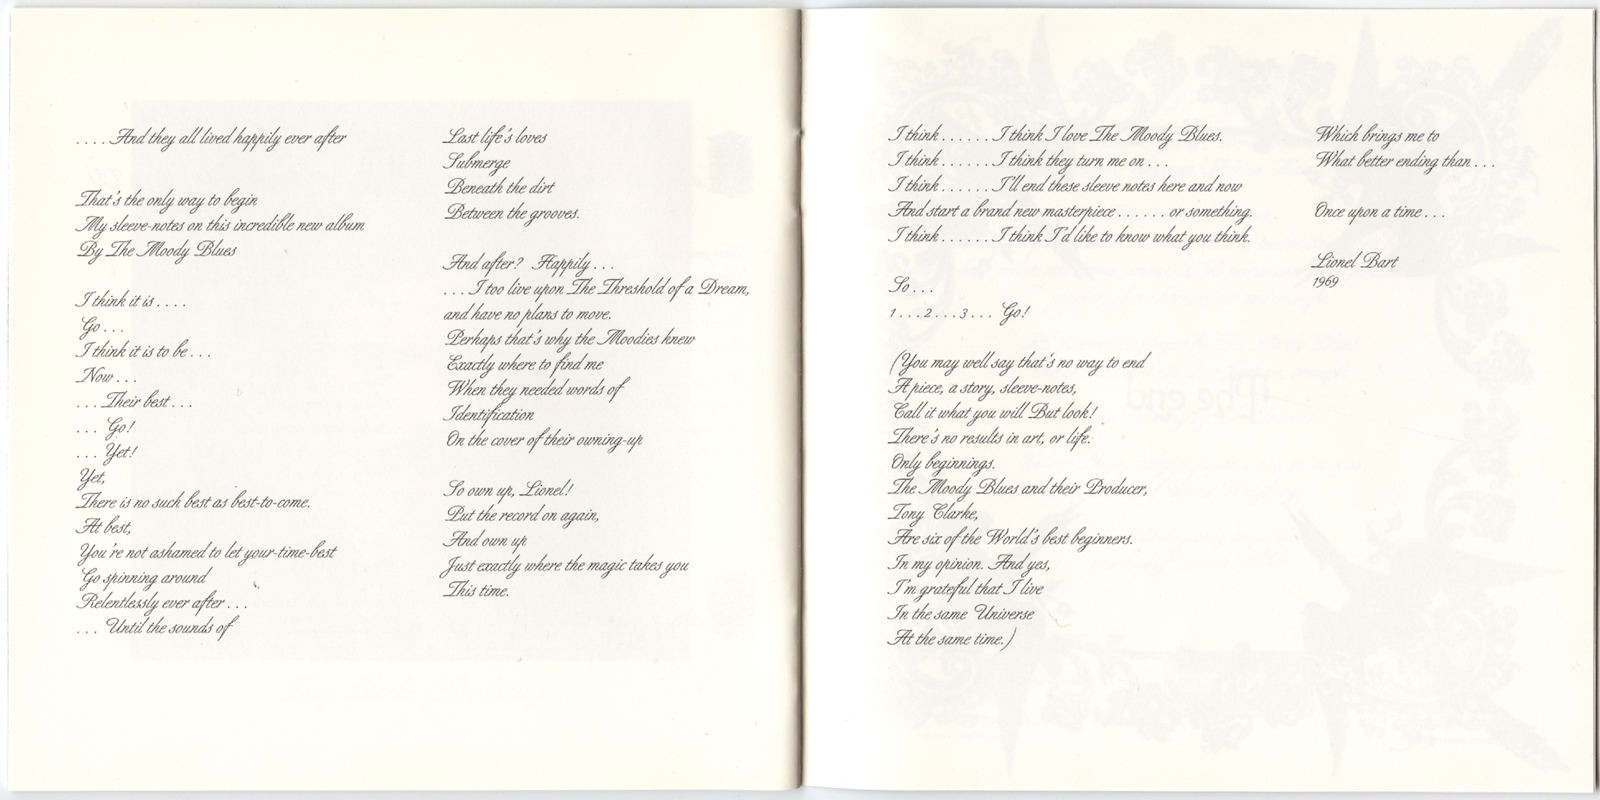 . . . . And they all lived happily ever after
That's the only way to begin
My sleeve-notes on this incredible new album
By The Moody Blues
I think it is . . . .
Go . . .
I think it is to be . . .
Now . . .
. . . Their best . . .
. . . Go!
. . . Yet!
Yet,
There is no such best as best-to-come.
At best,
You're not ashamed to let your-time-best
Go spinning around
Relentlessly ever after . . .
. . . Until the sounds of
Last life's loves
Submerge
Beneath the dirt
Between the grooves.
And after? Happily . . .
. . . I too live upon The Threshold of a Dream,
and have no plans to move.
Perhaps that's why the Moodies knew
Exactly where to find me
When they needed words of
Identification
On the cover of their owning-up
So own up, Lionel!
Put the record on again,
And own up
Just exactly where the magic takes you
This time.
I think . . . . . . I think I love The Moody Blues.
I think . . . . . . I think they turn me on . . .
I think . . . . . . I'll end these sleeve notes here and now
And start a brand new masterpiece . . . . . . or something.
I think . . . . . . I think I'd like to know what you think.
So . . .
1 . . . 2 . . . 3 . . . Go!
(You may well say that's no way to end
A piece, a story, sleeve-notes,
Call it what you will But look!
There's no results in art, or life.
Only beginnings.
The Moody Blues and their Producer,
Tony Clarke,
Are six of the World's best beginners.
In my opinion. And yes,
I'm grateful that I live
In the same Universe
At the same time.)
Which brings me to
What better ending than . . .
Once upon a time . . .
Lionel Bart
1969
The end